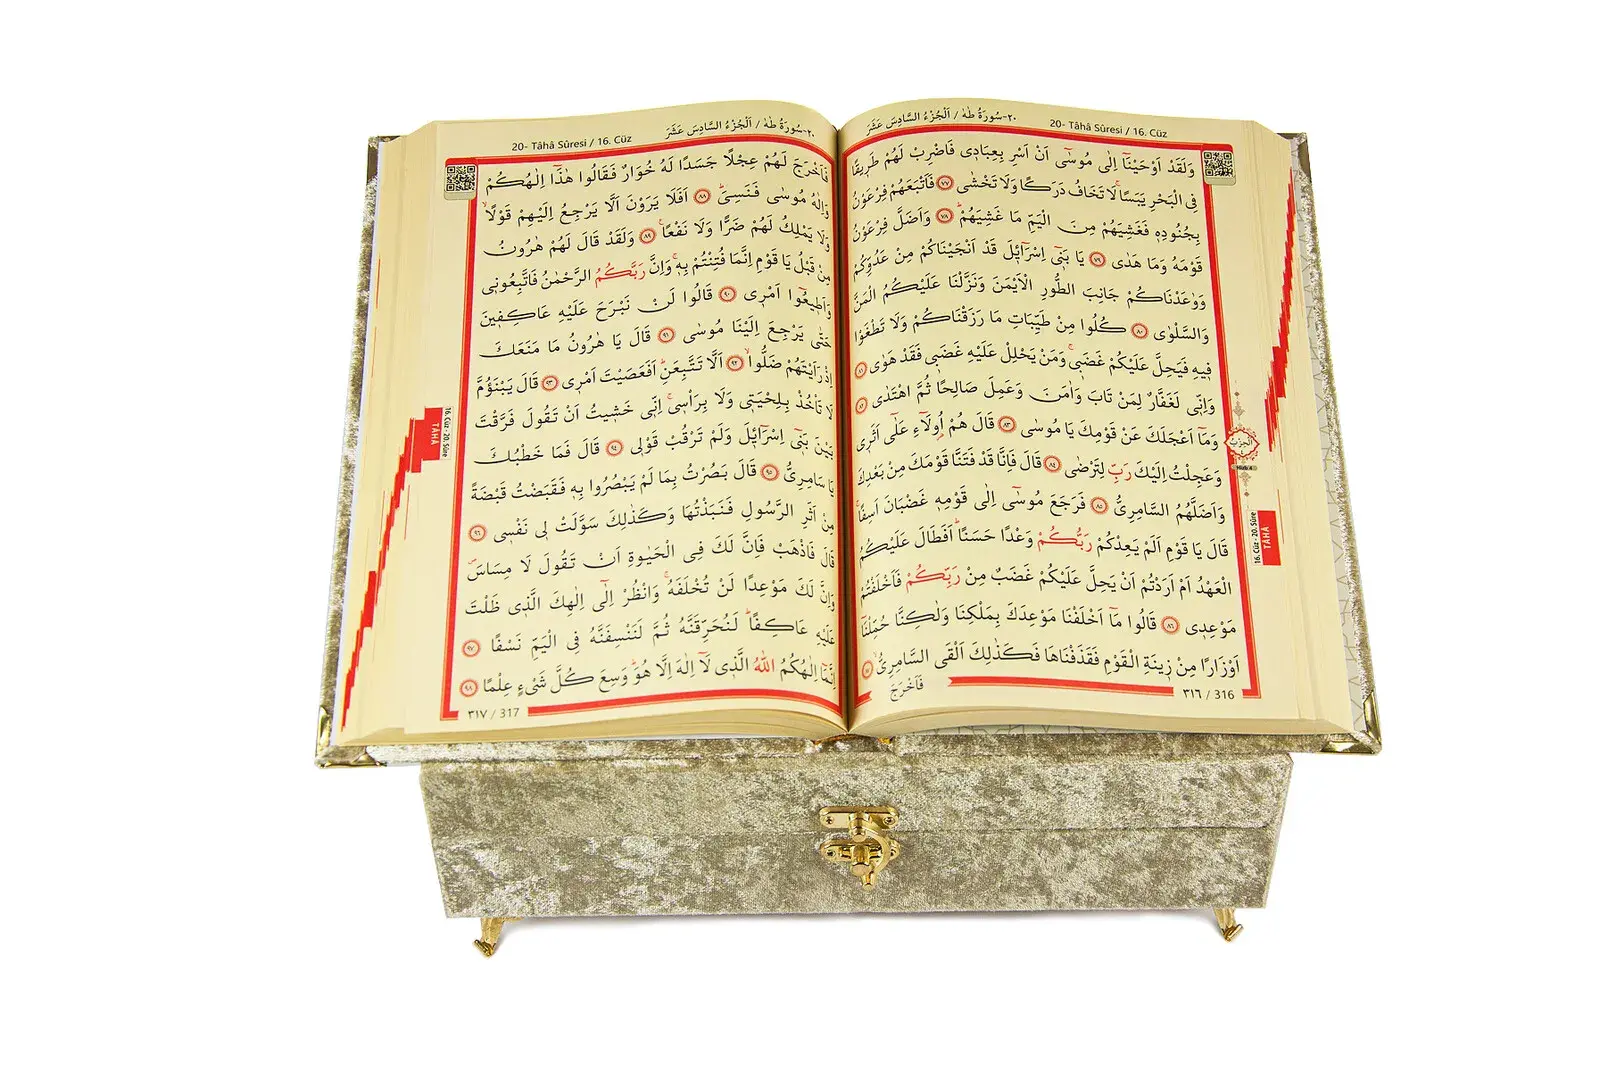 ٢٠-سُورَةُ طٰهٰ / اَلْجُزْءُ السَّادِسَ عَشَرَ
20- Tâhâ Sûresi / 16. Cüz
وَلَقَدْ اَوْحَيْنَٓا اِلٰى مُوسٰٓى اَنْ اَسْرِ بِعِبَادٖى فَاضْرِبْ لَهُمْ طَرٖيقًا
فِى الْبَحْرِ يَبَسًاۙ لَا تَخَافُ دَرَكًا وَلَا تَخْشٰى ﴿٧٧﴾ فَاَتْبَعَهُمْ فِرْعَوْنُ
بِجُنُودِهٖ فَغَشِيَهُمْ مِنَ الْيَمِّ مَا غَشِيَهُمْۜ ﴿٧٨﴾ وَاَضَلَّ فِرْعَوْنُ
قَوْمَهُ وَمَا هَدٰى ﴿٧٩﴾ يَا بَنٖٓى اِسْرَٓائٖلَ قَدْ اَنْجَيْنَاكُمْ مِنْ عَدُوِّكُمْ
وَوٰعَدْنَاكُمْ جَانِبَ الطُّورِ الْاَيْمَنَ وَنَزَّلْنَا عَلَيْكُمُ الْمَنَّ
وَالسَّلْوٰى ﴿٨٠﴾ كُلُوا مِنْ طَيِّبَاتِ مَا رَزَقْنَاكُمْ وَلَا تَطْغَوْا
فٖيهِ فَيَحِلَّ عَلَيْكُمْ غَضَبٖىۚ وَمَنْ يَحْلِلْ عَلَيْهِ غَضَبٖى فَقَدْ هَوٰى ﴿٨١﴾
وَاِنّٖى لَغَفَّارٌ لِمَنْ تَابَ وَاٰمَنَ وَعَمِلَ صَالِحًا ثُمَّ اهْتَدٰى ﴿٨٢﴾
وَمَٓا اَعْجَلَكَ عَنْ قَوْمِكَ يَا مُوسٰى ﴿٨٣﴾ قَالَ هُمْ اُو۬لَٓاءِ عَلٰٓى اَثَرٖى
وَعَجِلْتُ اِلَيْكَ رَبِّ لِتَرْضٰى ﴿٨٤﴾ قَالَ فَاِنَّا قَدْ فَتَنَّا قَوْمَكَ مِنْ بَعْدِكَ
وَاَضَلَّهُمُ السَّامِرِىُّ ﴿٨٥﴾ فَرَجَعَ مُوسٰٓى اِلٰى قَوْمِهٖ غَضْبَانَ اَسِفًاۚ
قَالَ يَا قَوْمِ اَلَمْ يَعِدْكُمْ رَبُّكُمْ وَعْدًا حَسَنًاۜ اَفَطَالَ عَلَيْكُمُ
الْعَهْدُ اَمْ اَرَدْتُمْ اَنْ يَحِلَّ عَلَيْكُمْ غَضَبٌ مِنْ رَبِّكُمْ فَاَخْلَفْتُمْ
مَوْعِدٖى ﴿٨٦﴾ قَالُوا مَٓا اَخْلَفْنَا مَوْعِدَكَ بِمَلْكِنَا وَلٰكِنَّا حُمِّلْنَٓا
اَوْزَارًا مِنْ زٖينَةِ الْقَوْمِ فَقَذَفْنَاهَا فَكَذٰلِكَ اَلْقَى السَّامِرِىُّۙ ﴿٨٧﴾
فَاَخْرَجَ
٣١٦ / 316
اَلْحِزْبُ
16. Cüz - 20. Sûre
TÂHÂ
٢٠-سُورَةُ طٰهٰ / اَلْجُزْءُ السَّادِسَ عَشَرَ
20- Tâhâ Sûresi / 16. Cüz
فَاَخْرَجَ لَهُمْ عِجْلًا جَسَدًا لَهُ خُوَارٌ فَقَالُوا هٰذَٓا اِلٰهُكُمْ
وَاِلٰهُ مُوسٰى فَنَسِىَۜ ﴿٨٨﴾ اَفَلَا يَرَوْنَ اَلَّا يَرْجِعُ اِلَيْهِمْ قَوْلًاۙ
وَلَا يَمْلِكُ لَهُمْ ضَرًّا وَلَا نَفْعًاۚ ﴿٨٩﴾ وَلَقَدْ قَالَ لَهُمْ هٰرُونُ
مِنْ قَبْلُ يَا قَوْمِ اِنَّمَا فُتِنْتُمْ بِهٖۚ وَاِنَّ رَبَّكُمُ الرَّحْمٰنُ فَاتَّبِعُونٖى
وَاَطٖيعُٓوا اَمْرٖى ﴿٩٠﴾ قَالُوا لَنْ نَبْرَحَ عَلَيْهِ عَاكِفٖينَ
حَتّٰى يَرْجِعَ اِلَيْنَا مُوسٰى ﴿٩١﴾ قَالَ يَا هٰرُونُ مَا مَنَعَكَ
اِذْ رَاَيْتَهُمْ ضَلُّٓواۙ ﴿٩٢﴾ اَلَّا تَتَّبِعَنِۜ اَفَعَصَيْتَ اَمْرٖى ﴿٩٣﴾ قَالَ يَبْنَؤُ۬مَّ
لَا تَأْخُذْ بِلِحْيَتٖى وَلَا بِرَأْسٖىۚ اِنّٖى خَشٖيتُ اَنْ تَقُولَ فَرَّقْتَ
بَيْنَ بَنٖٓى اِسْرَٓائٖلَ وَلَمْ تَرْقُبْ قَوْلٖى ﴿٩٤﴾ قَالَ فَمَا خَطْبُكَ
يَا سَامِرِىُّ ﴿٩٥﴾ قَالَ بَصُرْتُ بِمَا لَمْ يَبْصُرُوا بِهٖ فَقَبَضْتُ قَبْضَةً
مِنْ اَثَرِ الرَّسُولِ فَنَبَذْتُهَا وَكَذٰلِكَ سَوَّلَتْ لٖى نَفْسٖى ﴿٩٦﴾
قَالَ فَاذْهَبْ فَاِنَّ لَكَ فِى الْحَيٰوةِ اَنْ تَقُولَ لَا مِسَاسَۖ
وَاِنَّ لَكَ مَوْعِدًا لَنْ تُخْلَفَهُۚ وَانْظُرْ اِلٰٓى اِلٰهِكَ الَّذٖى ظَلْتَ
عَلَيْهِ عَاكِفًاۜ لَنُحَرِّقَنَّهُ ثُمَّ لَنَنْسِفَنَّهُ فِى الْيَمِّ نَسْفًا ﴿٩٧﴾
اِنَّمَٓا اِلٰهُكُمُ اللّٰهُ الَّذٖى لَٓا اِلٰهَ اِلَّا هُوَۜ وَسِعَ كُلَّ شَىْءٍ عِلْمًا ﴿٩٨﴾
٣١٧ / 317
16. Cüz - 20. Sûre
TÂHÂ